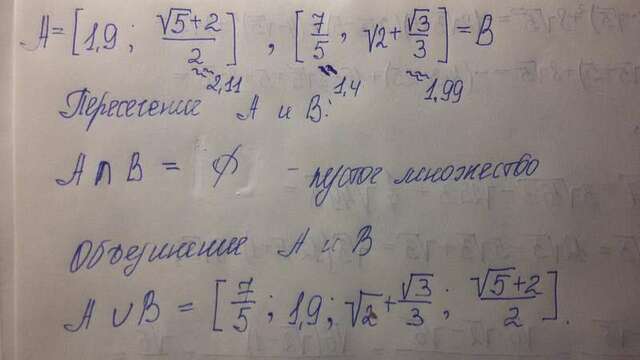 A = [1,9 ; (√5+2)/2] , [7/5 , √2 + √3/3] = B
≈2,11 ≈1,4 ≈1,99
Пересечение A и B:
A ∩ B = ∅ - пустое множество
Объединение A и B
A ∪ B = [7/5 ; 1,9 ; √2 + √3/3 ; (√5+2)/2].